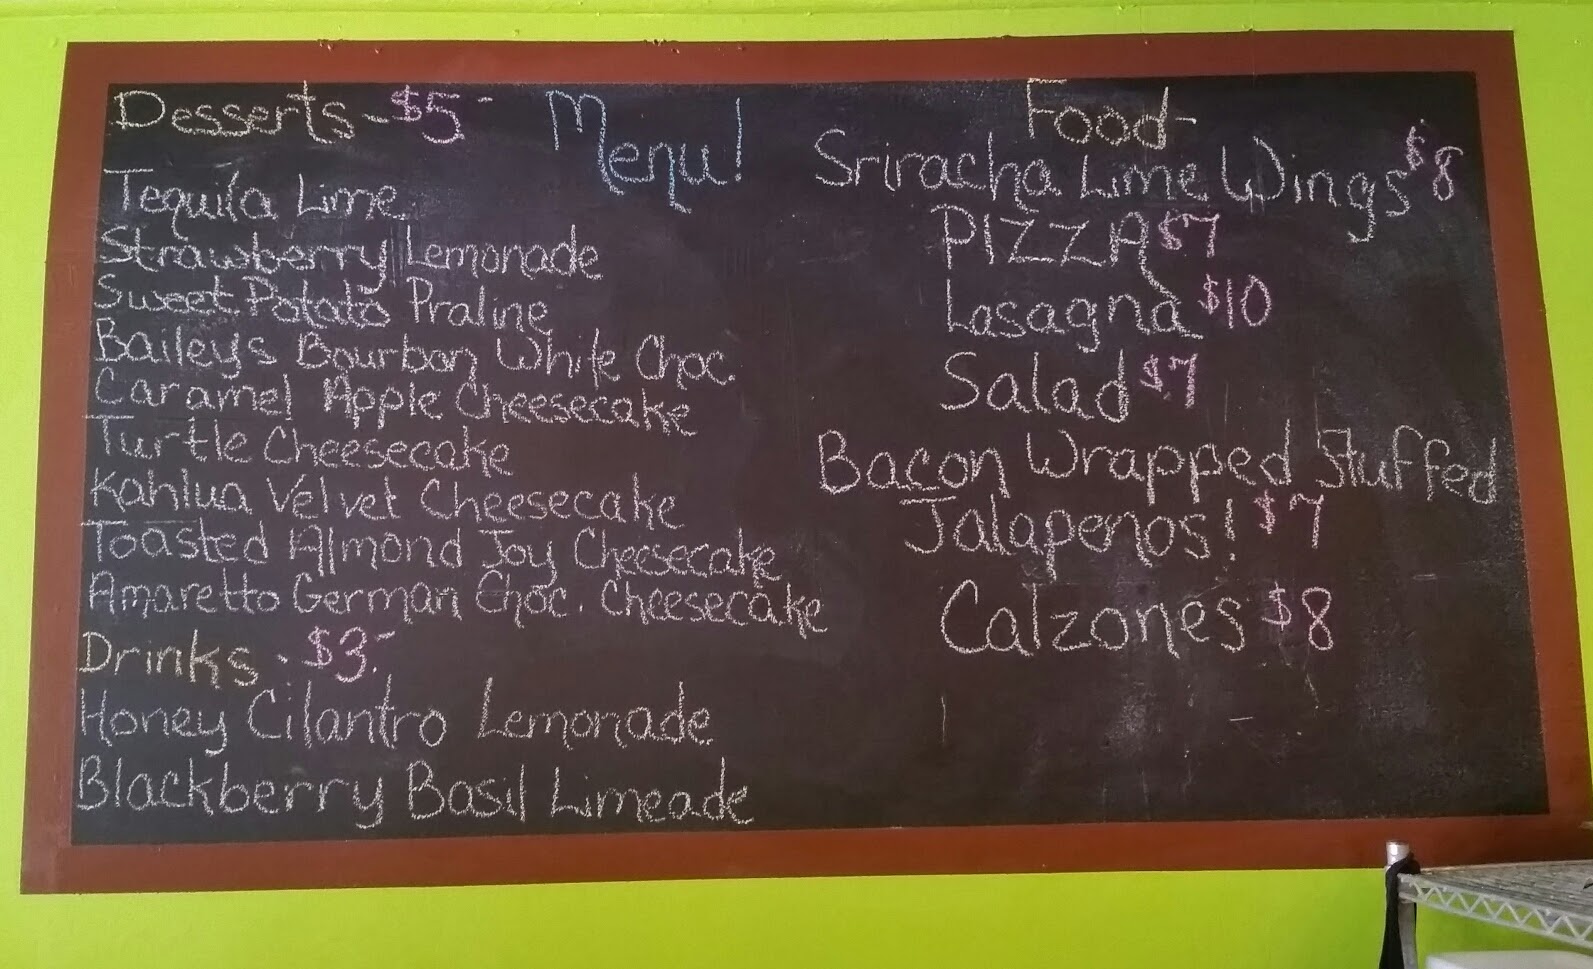 Menu!
Desserts - $5.-
Tequila Lime
Strawberry Lemonade
Sweet Potato Praline
Bailey's Bourbon White Choc.
Caramel Apple Cheesecake
Turtle Cheesecake
Kahlua Velvet Cheesecake
Toasted Almond Joy Cheesecake
Amaretto German Choc. Cheesecake
Drinks - $3.-
Honey Cilantro Lemonade
Blackberry Basil Limeade
Food-
Sriracha Lime Wings $8
PIZZA $7
Lasagna $10
Salad $7
Bacon Wrapped Stuffed
Jalapenos! $7
Calzones $8